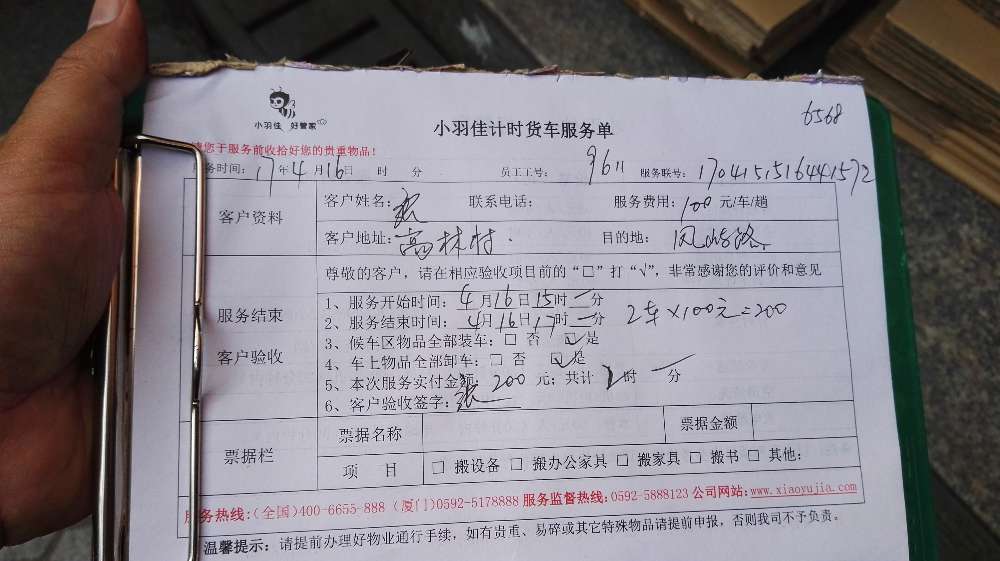 小羽佳 好管家
小羽佳计时货车服务单
6568
请您于服务前收拾好您的贵重物品！
服务时间：17年4月16日 时 分 员工工号：9611 服务联号：
客户资料
客户姓名：张 联系电话： 服务费用：100元/车/趟
客户地址：高林村. 目的地：
服务结束
客户验收
尊敬的客户，请在相应验收项目前的“□”打“√”，非常感谢您的评价和意见
1、服务开始时间：4月16日15时一分
2、服务结束时间：4月16日17时一分
2车×100元=200
3、候车区物品全部装车：□ 否 ☑是
4、车上物品全部卸车：□ 否 ☑是
5、本次服务实付金额：200元；共计2时一分
6、客户验收签字：张
票据栏
票据名称 票据金额
项 目 □ 搬设备 □ 搬办公家具 □ 搬家具 □ 搬书 □ 其他：
服务热线：(全国)400-6655-888 (厦门)0592-5178888 服务监督热线：0592-5888123 公司网站：www.xiaoyujia.com
温馨提示：请提前办理好物业通行手续，如有贵重、易碎或其它特殊物品请提前申报，否则我司不予负责。